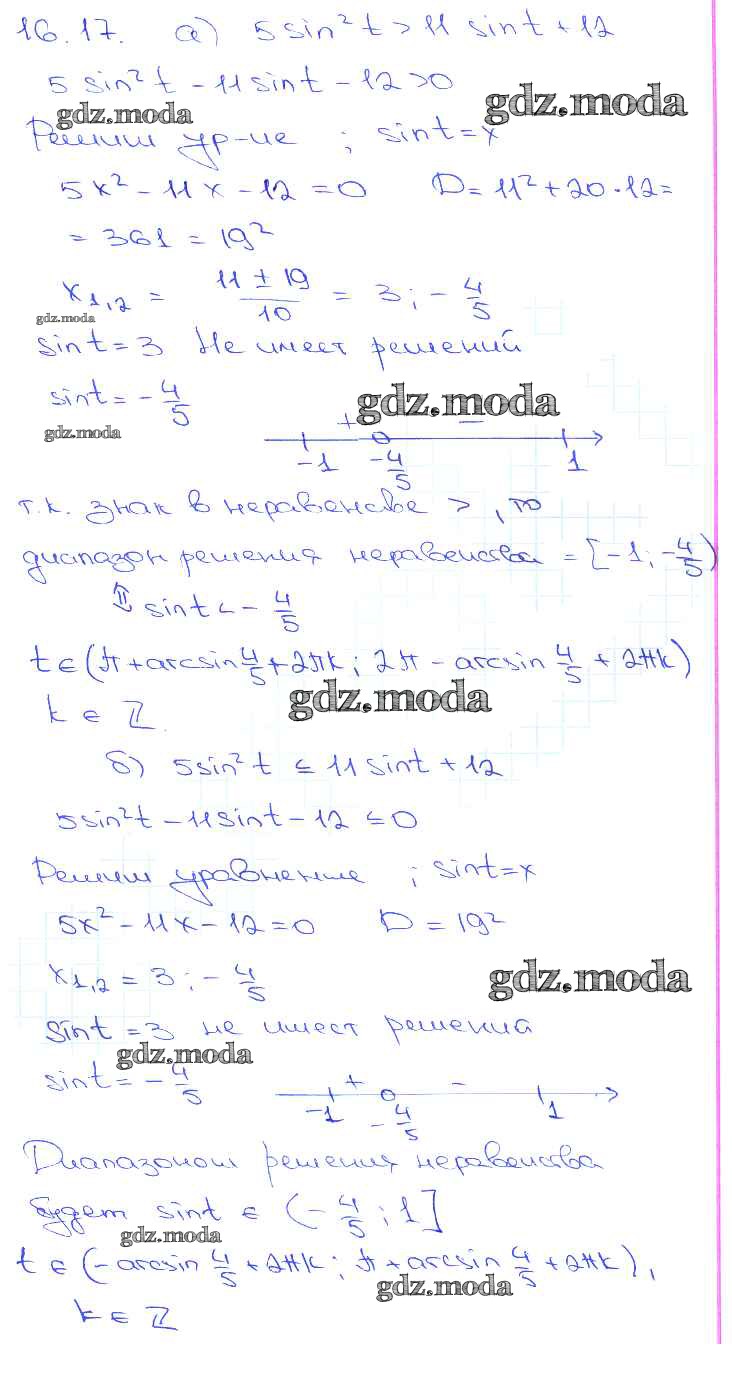 16.17. а) 5 sin²t > 11 sint + 12
5 sin²t - 11 sint - 12 > 0
gdz.moda gdz.moda
Решим ур-ие ; sint = x
5x² - 11x - 12 = 0 D = 11² + 20·12 =
= 361 = 19²
x₁,₂ = (11 ± 19)/10 = 3; -4/5
gdz.moda
sint = 3 Не имеет решений
sint = -4/5 gdz.moda
gdz.moda + −
-1 -4/5 1
т.к. знак в неравенстве > , то
диапазон решения неравенства = [-1; -4/5)
⇕ sint < -4/5
t ∈ (π + arcsin 4/5 + 2πk; 2π - arcsin 4/5 + 2πk)
gdz.moda
k ∈ ℤ
б) 5sin²t ≤ 11 sint + 12
5sin²t - 11sint - 12 ≤ 0
Решим уравнение ; sint = x
5x² - 11x - 12 = 0 D = 19²
x₁,₂ = 3; -4/5 gdz.moda
sint = 3 не имеет решения
gdz.moda
sint = -4/5 + -
-1 -4/5 1
Диапазоном решения неравенства
будет sint ∈ (-4/5; 1]
gdz.moda
t ∈ (-arcsin 4/5 + 2πk; π + arcsin 4/5 + 2πk),
gdz.moda
k ∈ ℤ